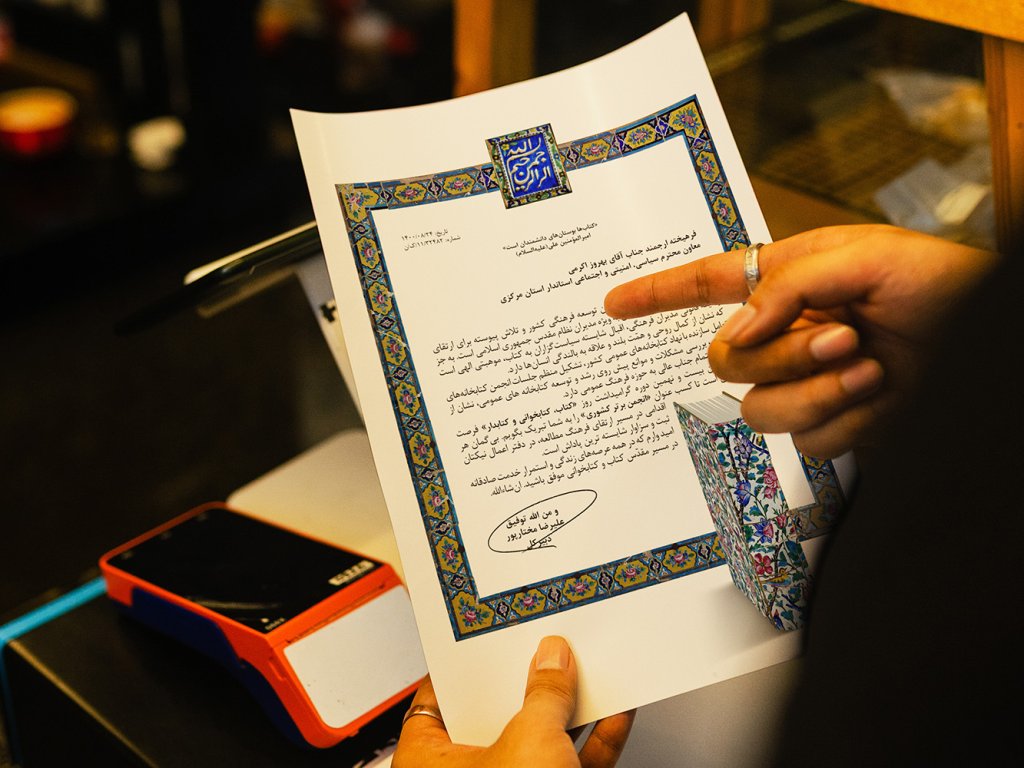 بسم الله الرحمن الرحیم
«کتاب‌ها بوستان‌های دانشمندان است»
امیرالمؤمنین علی (علیه‌السلام)
تاریخ: ۱۴۰۰/۰۸/۲۴
شماره: ۱۱/۳۲۴۸۲/ان‌ک
فرهیخته ارجمند جناب آقای بهروز اکرمی
معاون محترم سیاسی، امنیتی و اجتماعی استاندار استان مرکزی
توسعه فرهنگی کشور و تلاش پیوسته برای ارتقای
قانونی مدیران فرهنگی، اقبال شایسته سیاست‌گزاران به کتاب، موهبتی الهی است
ویژه مدیران نظام مقدس جمهوری اسلامی است. به جز
که نشان از کمال روحی و همت بلند و علاقه به بالندگی انسان‌ها دارد.
سازنده با نهاد کتابخانه‌های عمومی کشور، تشکیل منظم جلسات انجمن کتابخانه‌های
بررسی مشکلات و موانع پیش روی رشد و توسعه کتابخانه های عمومی، نشان از
جناب عالی به حوزه فرهنگ عمومی دارد.
بیست و نهمین دوره گرامیداشت روز «کتاب، کتابخوانی و کتابدار» فرصت
است تا کسب عنوان «انجمن برتر کشوری» را به شما تبریک بگویم. بی گمان هر
اقدامی در مسیر ارتقای فرهنگ مطالعه، در دفتر اعمال نیکتان
ثبت و سزاوار شایسته ترین پاداش است.
امیدوارم که در همه عرصه‌های زندگی و استمرار خدمت صادقانه
در مسیر مقدس کتاب و کتابخوانی موفق باشید. ان‌شاءالله.
و من الله توفیق
علیرضا مختارپور
دبیرکل